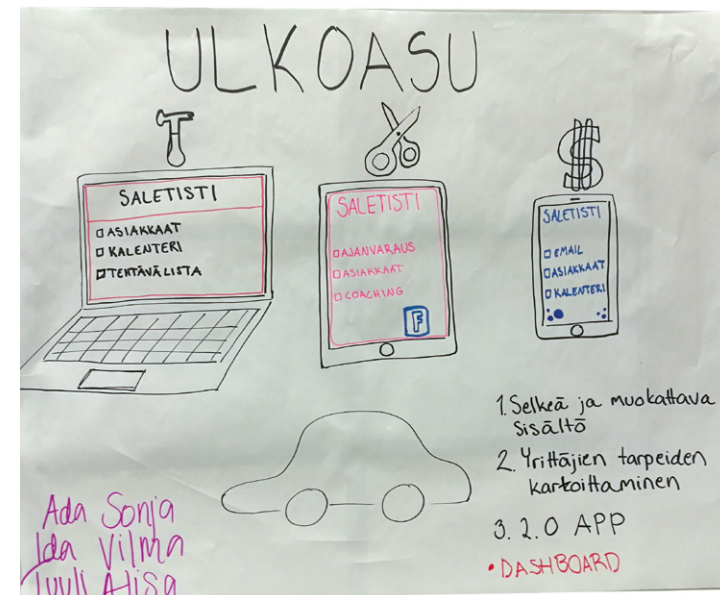 ULKOASU
SALETISTI
ASIAKKAAT
KALENTERI
TEHTÄVÄLISTA
SALETISTI
AJANVARAUS
ASIAKKAAT
COACHING
F
$
SALETISTI
EMAIL
ASIAKKAAT
KALENTERI
1. Selkeä ja muokattava
sisältö
2. Yrittäjien tarpeiden
kartoittaminen
3. 2.0 APP
• DASHBOARD
Ada Sonja
Ida Vilma
Tuuli Alisa